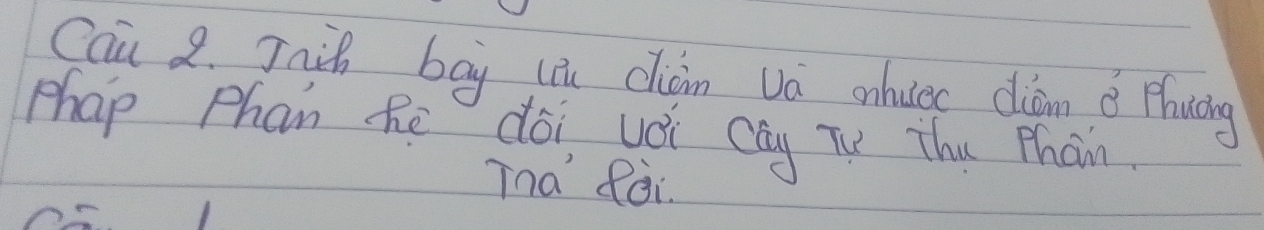 Câu 2. Trình bày ưu điểm và nhược điểm ở phương
pháp phân hệ đối với cây tự thụ phấn.
Trả lời.